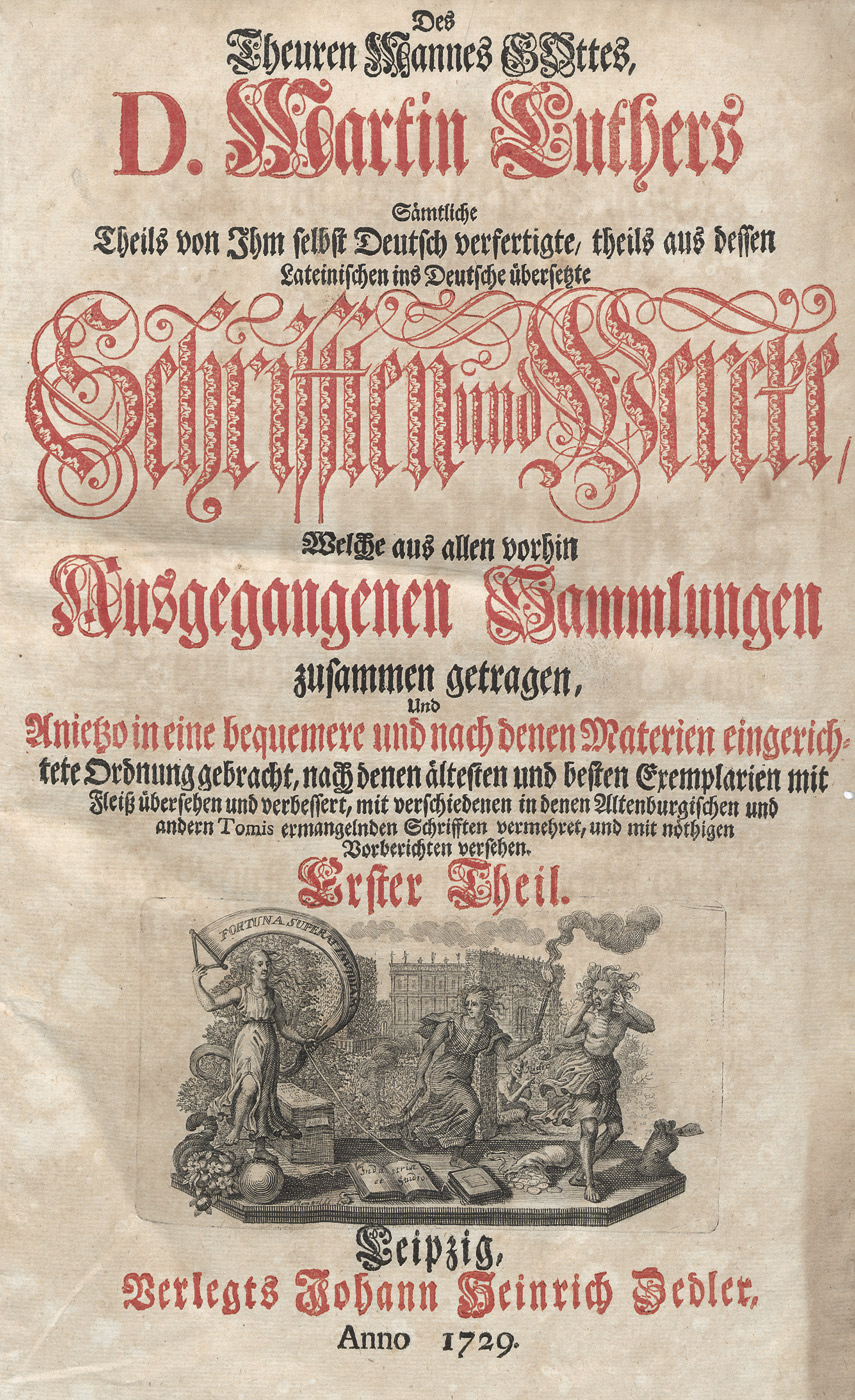 Des
Theuren Mannes GOttes,
D. Martin Luthers
Sämtliche
Theils von Ihm selbst Deutsch verfertigte, theils aus dessen
Lateinischen ins Deutsche übersetzte
Schrifften und Wercke,
Welche aus allen vorhin
Ausgegangenen Sammlungen
zusammen getragen,
Und
Anietzo in eine bequemere und nach denen Materien eingerich-
tete Ordnung gebracht, nach denen ältesten und besten Exemplarien mit
Fleiß übersehen und verbessert, mit verschiedenen in denen Altenburgischen und
andern Tomis ermangelnden Schrifften vermehret, und mit nöthigen
Vorberichten versehen.
Erster Theil.
FORTUNA SUPERAT INVIDIAM
Leipzig,
Verlegts Johann Heinrich Zedler,
Anno 1729.